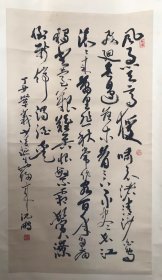 風急天高猿嘯哀渚清沙白鳥
飛迴無邊落木蕭蕭下不盡長江
滾滾來萬里悲秋常作客百年多病
獨登臺艱難苦恨繁霜鬢潦
倒新停濁酒杯
丁丑 沈鵬